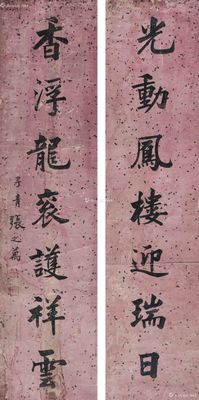 光動鳳樓迎瑞日
香浮龍袞護祥雲
子青張之萬